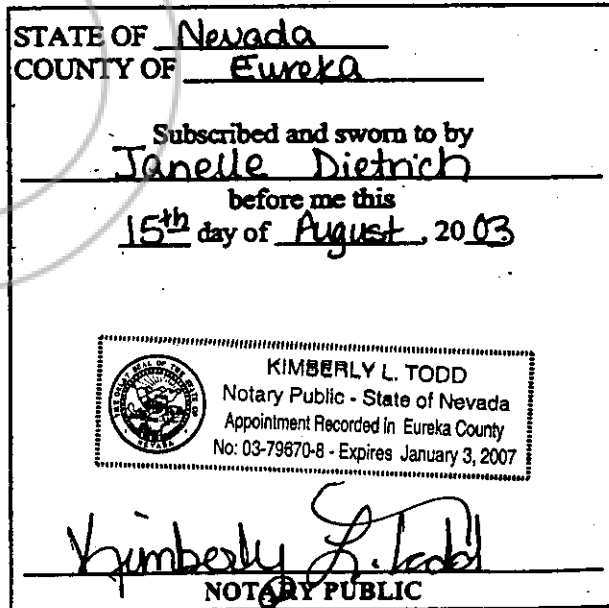 STATE OF Nevada
COUNTY OF Eureka
Subscribed and sworn to by
Janelle Dietrich
before me this
15th day of August, 2003
THE GREAT SEAL OF THE STATE OF NEVADA
KIMBERLY L. TODD
Notary Public - State of Nevada
Appointment Recorded in Eureka County
No: 03-79670-8 - Expires January 3, 2007
Kimberly L. Todd
NOTARY PUBLIC